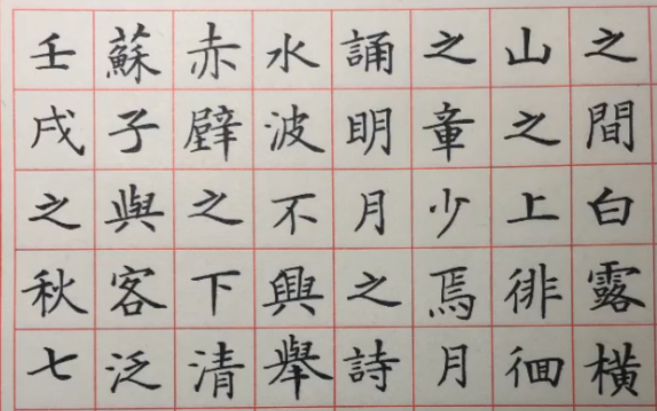 壬戌之秋七
蘇子與客泛
赤壁之下清
水波不興舉
誦明月之詩
之章少焉月
山之上徘徊
之間白露橫